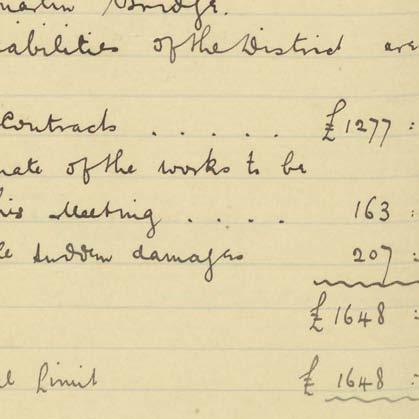 Bridge.
abilities of the District are
Contracts . . . . . . £1277 :
mate of the works to be
his Meeting . . . . 163 :
le sudden damages 207 :
£1648 :
al limit £1648 :